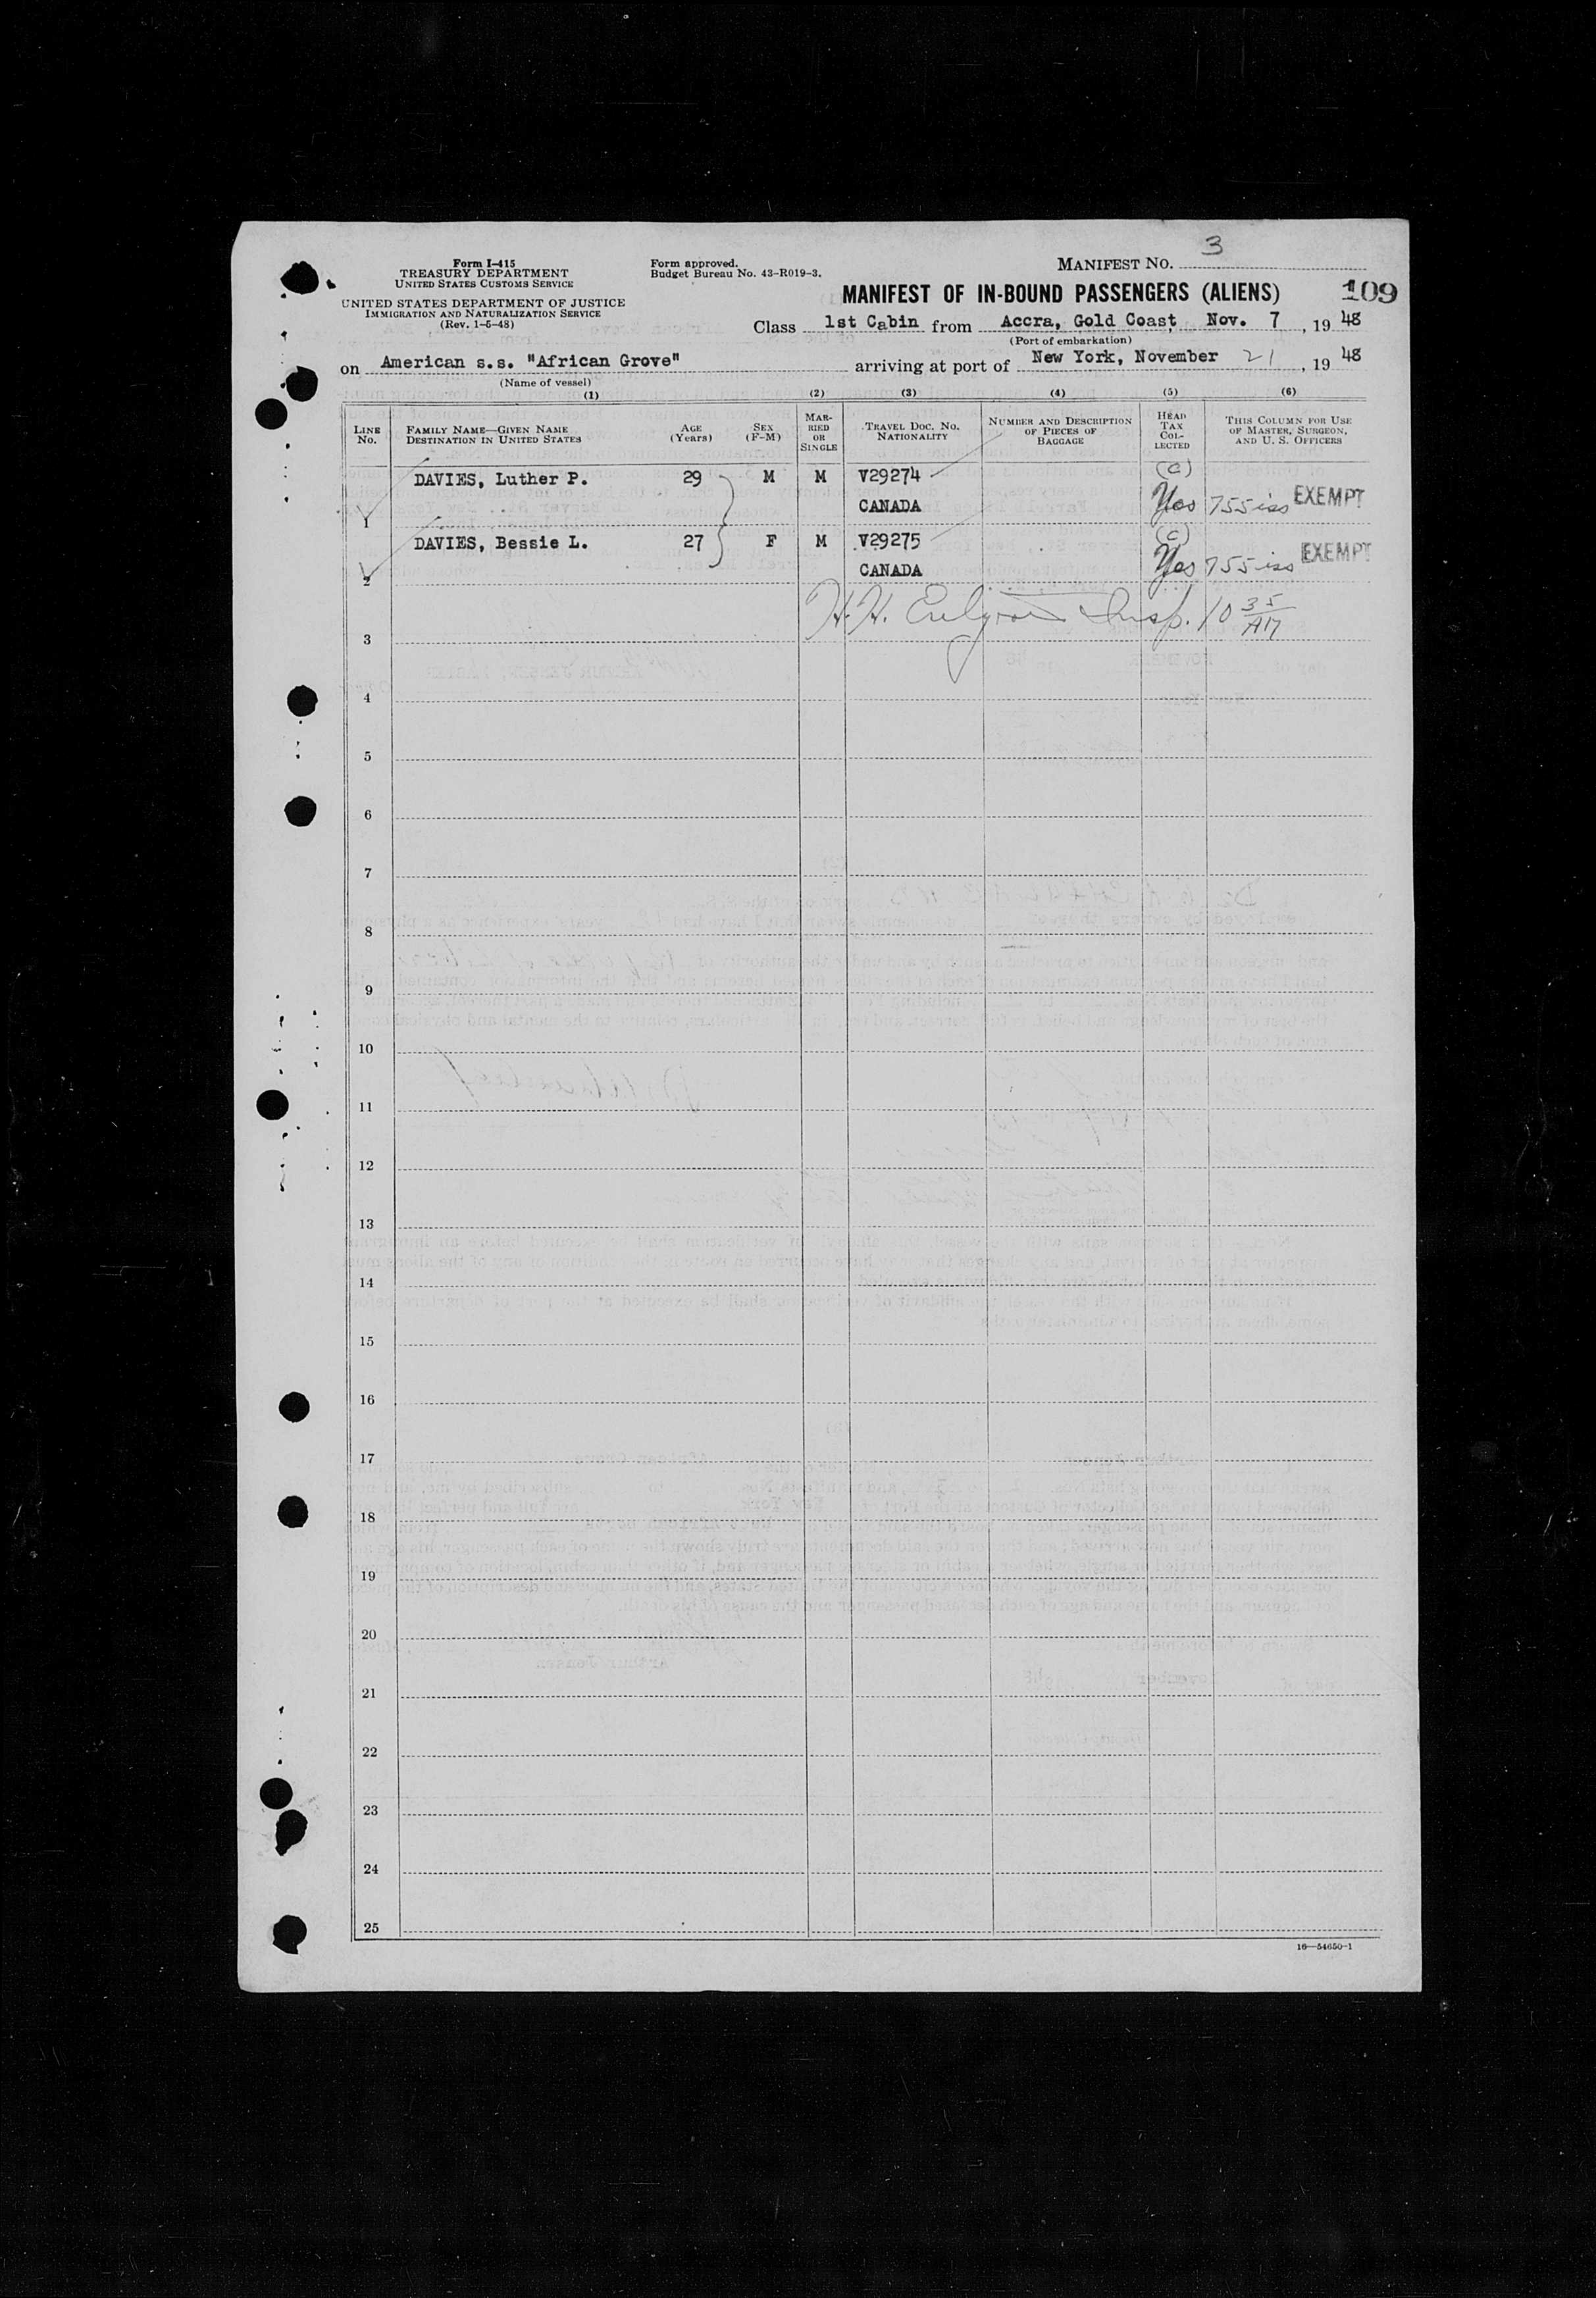 3
Form I-415
TREASURY DEPARTMENT
UNITED STATES CUSTOMS SERVICE
Form approved.
Budget Bureau No. 43-R019-3.
MANIFEST NO.
UNITED STATES DEPARTMENT OF JUSTICE
IMMIGRATION AND NATURALIZATION SERVICE
(Rev. 1-5-48)
MANIFEST OF IN-BOUND PASSENGERS (ALIENS)
109
Class 1st Cabin from Accra, Gold Coast, Nov. 7, 1948
(Port of embarkation)
on American s.s. "African Grove" arriving at port of New York, November 21, 1948
(Name of vessel)
(1) (2) (3) (4) (5) (6)
LINE No.
FAMILY NAME—GIVEN NAME
DESTINATION IN UNITED STATES
AGE (Years)
SEX (F-M)
MARRIED OR SINGLE
TRAVEL DOC. NO.
NATIONALITY
NUMBER AND DESCRIPTION OF PIECES OF BAGGAGE
HEAD TAX COLLECTED
THIS COLUMN FOR USE OF MASTER, SURGEON, AND U. S. OFFICERS
DAVIES, Luther P. 29 M M V29274 (c)
1 CANADA Yes 755 iss EXEMPT
DAVIES, Bessie L. 27 F M V29275 (c)
2 CANADA Yes 755 iss EXEMPT
H.H. Insp. 10 35 AM
3
4
5
6
7
8
9
10
11
12
13
14
15
16
17
18
19
20
21
22
23
24
25
16—54650-1